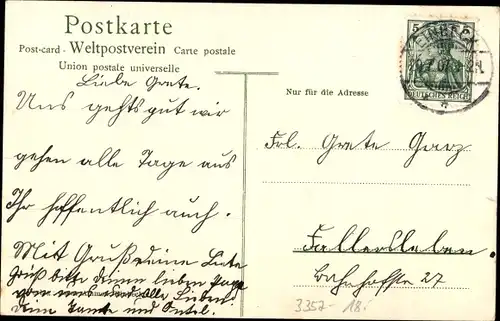 Postkarte
Post-card - Weltpostverein Carte postale
Union postale universelle
Nur für die Adresse
5
DEUTSCHES REICH
EINBECK
Liebe Grete.
Uns gehts gut wir
gehen alle Tage aus
Ihr hoffentlich auch.
Mit Gruß deine
Grüß bitte deinen lieben
und alle Lieben
dein Tante und Onkel.
Frl. Grete Garz
Fallersleben.
Bahnhofstr 27
3352-18.